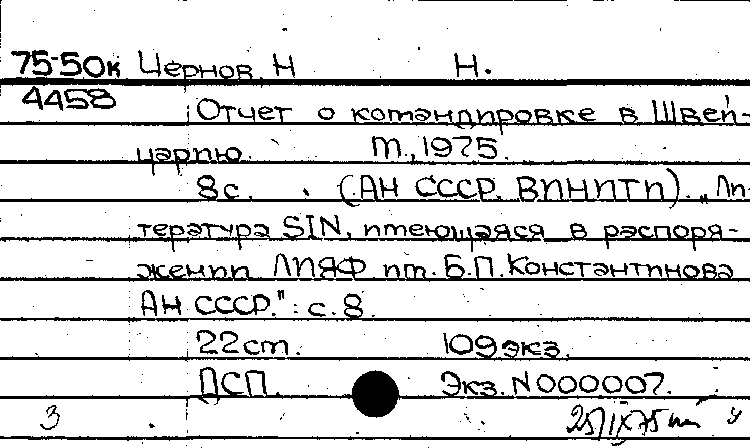 75-50к Чернов, Н Н.
4458 Отчет о командировке в Швей-
царию. М., 1975.
8с. (АН СССР. ВИНИТИ). „Ли-
тература SIN, имеющаяся в распоря-
жении ЛИЯФ им. Б.П.Константинова
АН СССР.": с.8.
22см. 109экз.
ДСП. Экз. N000007.
3 25/IX75